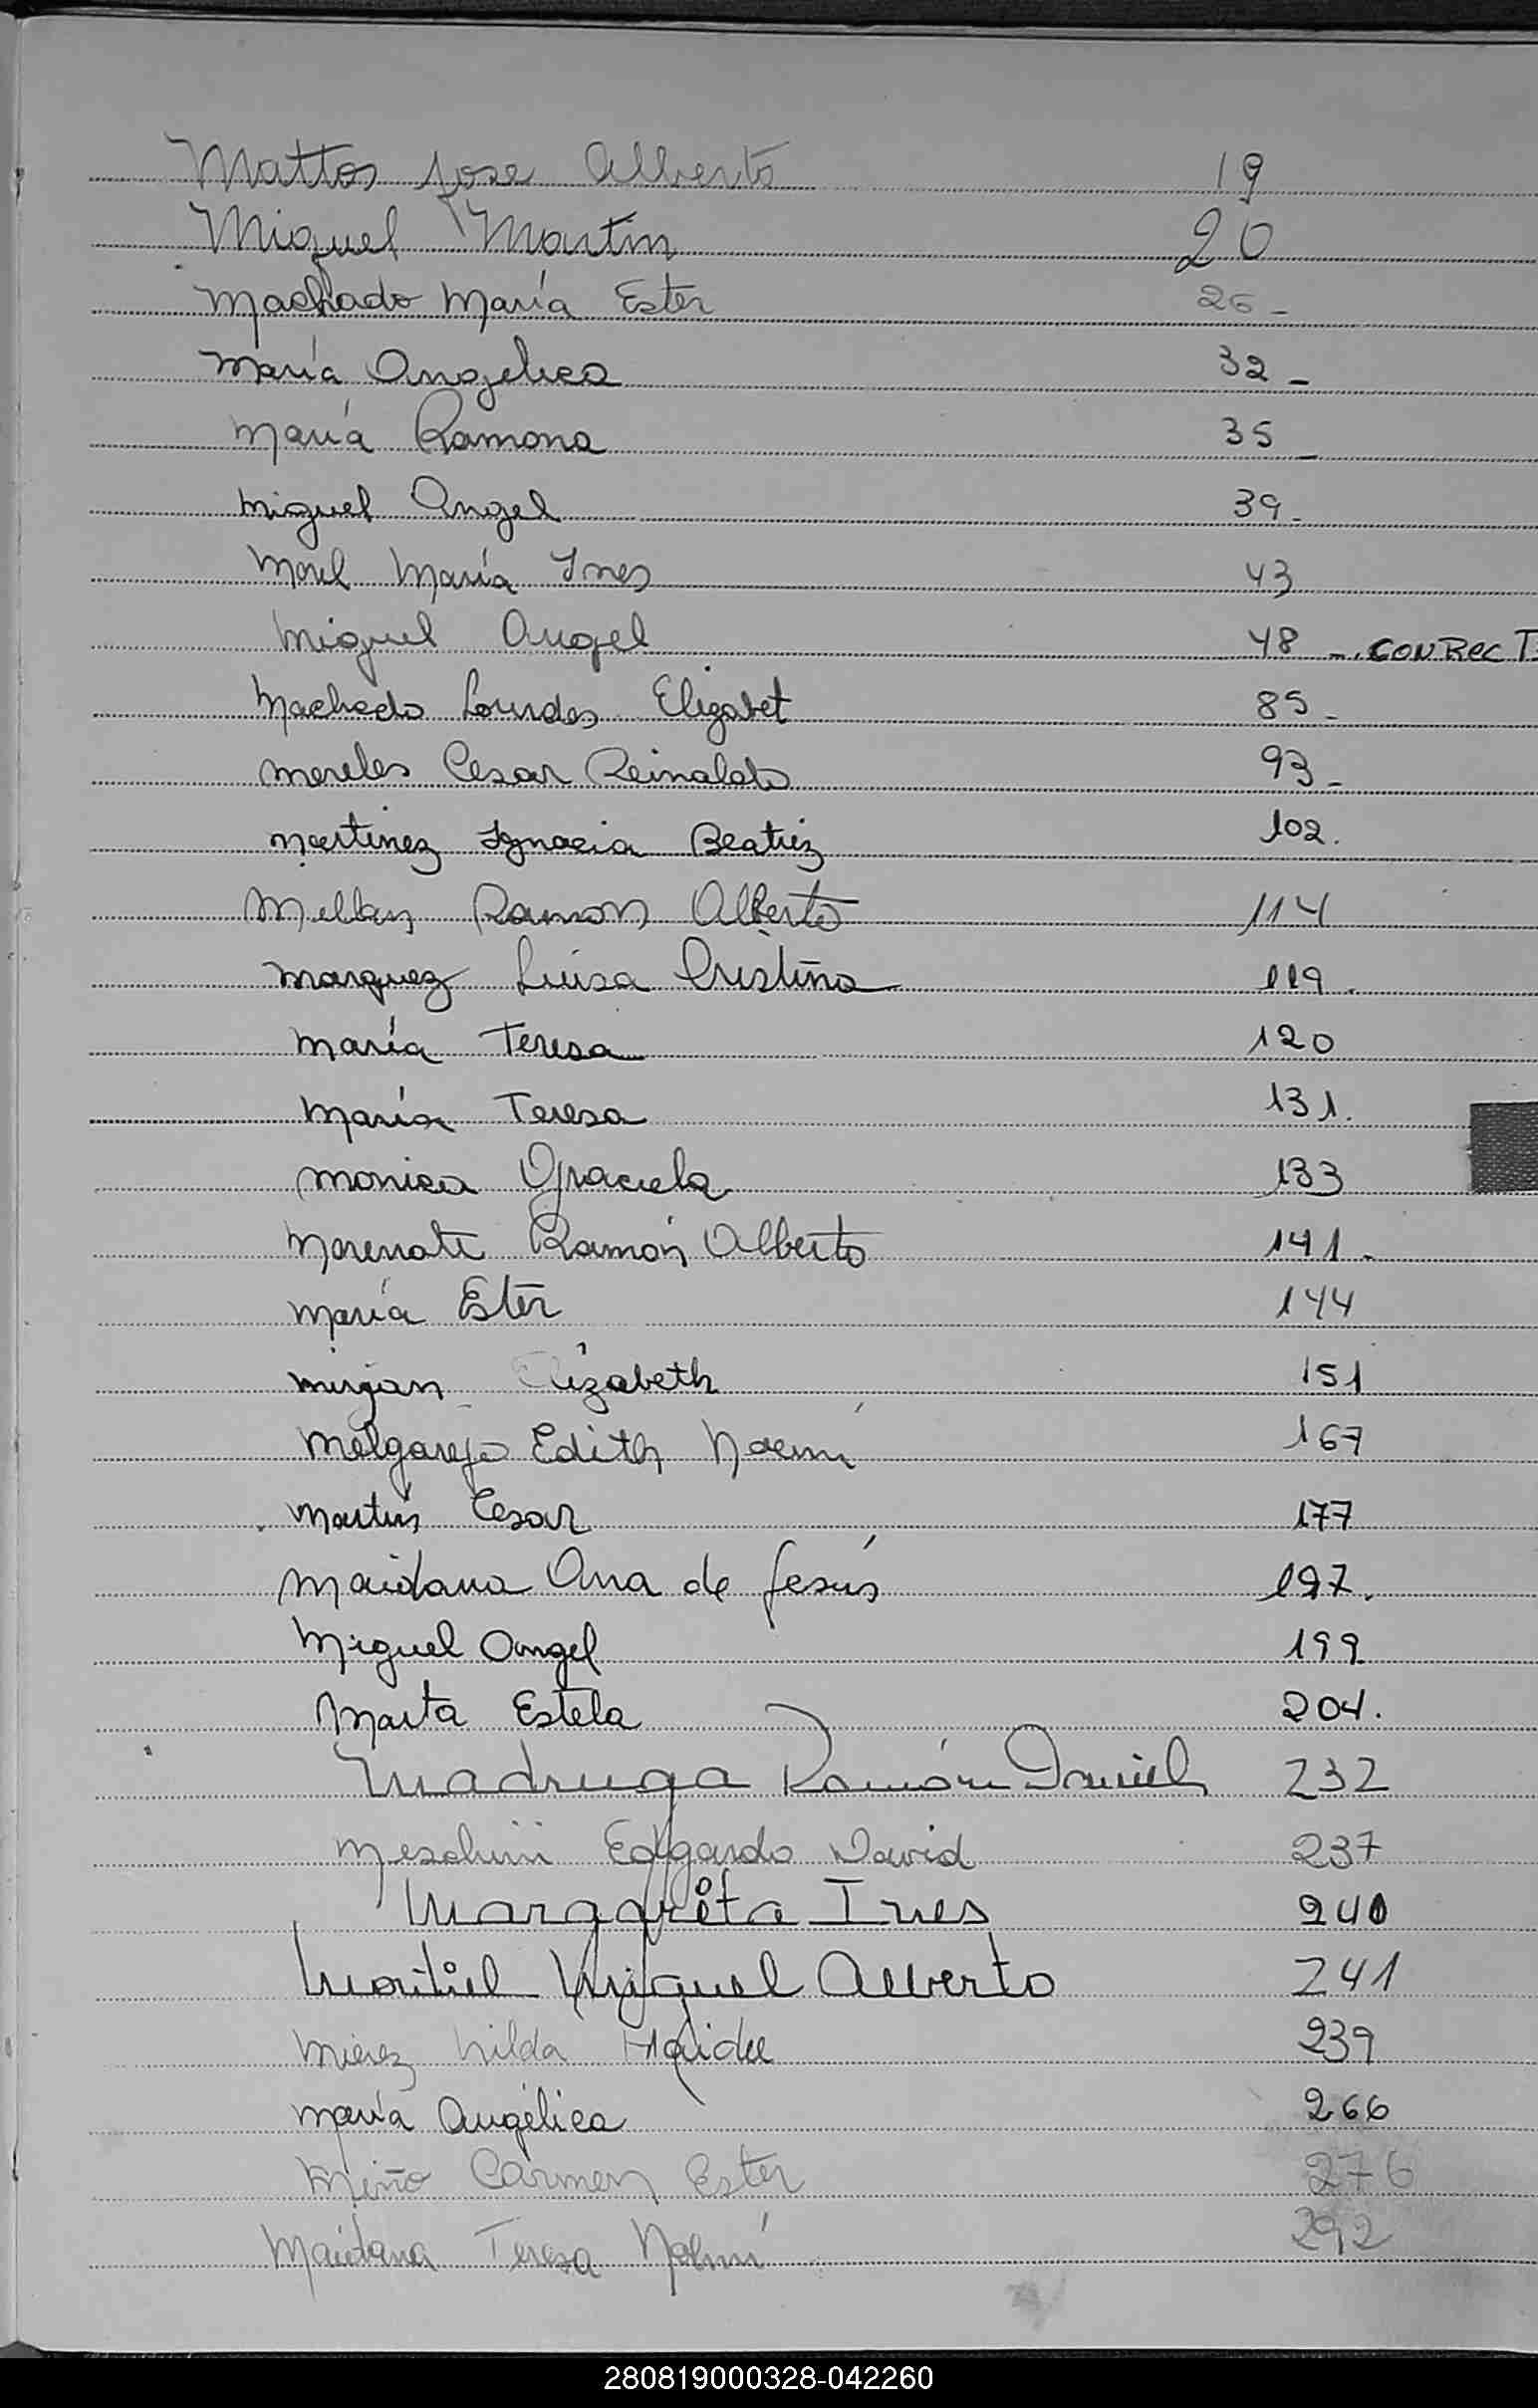 Mattos Jose Alberto 19
Miguel Martin 20
Machado María Ester 26 -
María Angelica 32 -
María Ramona 35 -
Miguel Angel 39 -
Morel María Ines 43
Miguel Angel 48 -. CORREC
Machado Lourdes Elizabet 85 -
Mereles Cesar Reinaldo 93 -
Martinez Ignacia Beatriz 102.
Ramon Alberto 114
Marquez Luisa Cristina 119.
María Teresa 120
María Teresa 131.
Monica Graciela 133
Ramón Alberto 141 -
María Ester 144
Mirian Elizabeth 151
Melgarejo Edith Noemí 167
Martin Cesar 177
Maidana Ana de Jesús 197.
Miguel Angel 199
Marta Estela 204.
Madruga Ramón Daniel 232
Edgardo David 237
Margarita Ines 240
Miguel Alberto 241
Mierez Nilda Haidee 239
María Angélica 266
Miño Carmen Ester 276
Maidana Teresa Noemí 292
280819000328-042260